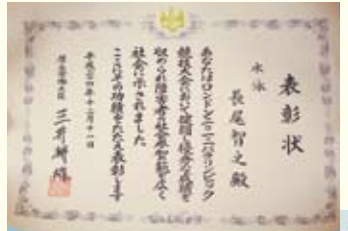 表彰状
水泳
長尾智之殿
あなたはロンドン二〇一二パラリンピック
競技大会において健闘し優秀な成績を
収められ障害者の社会参加の意義を広く
社会に示されました
ここにその功績をたたえ表彰します
平成二十四年十二月十一日
厚生労働大臣
三井辨雄